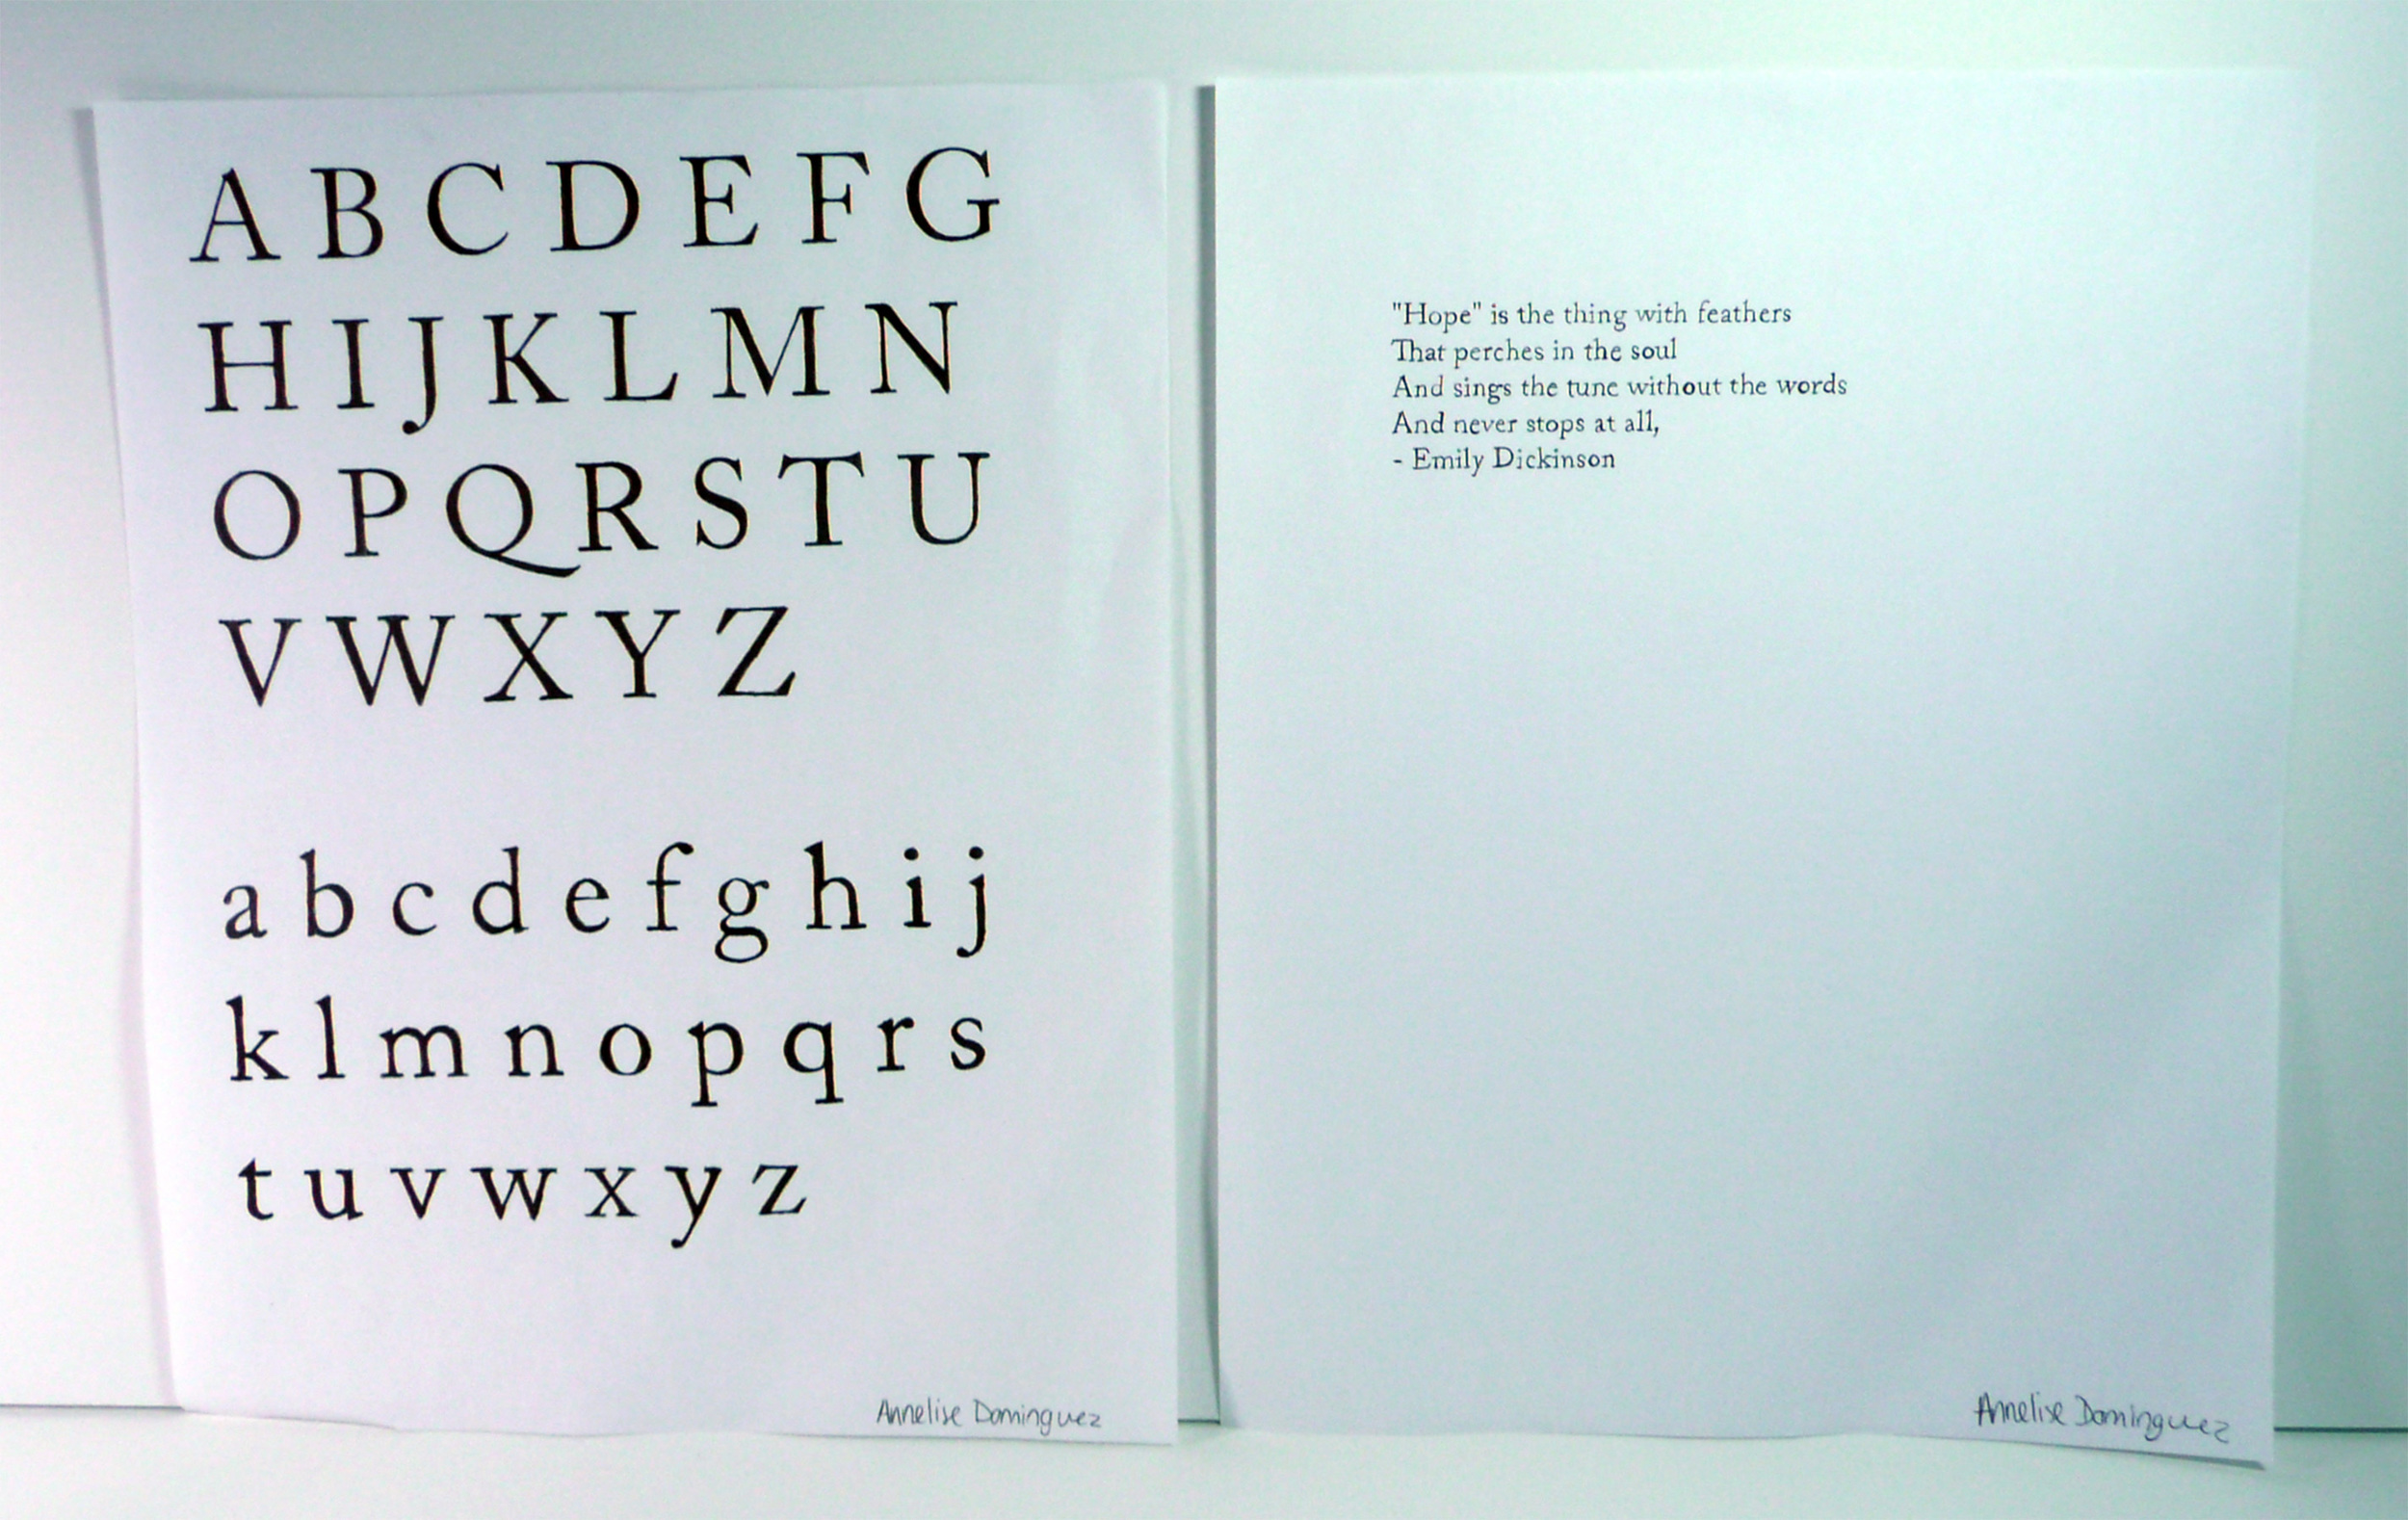 A B C D E F G
H I J K L M N
O P Q R S T U
V W X Y Z
a b c d e f g h i j
k l m n o p q r s
t u v w x y z
Annelise Dominguez
"Hope" is the thing with feathers
That perches in the soul
And sings the tune without the words
And never stops at all,
- Emily Dickinson
Annelise Dominguez